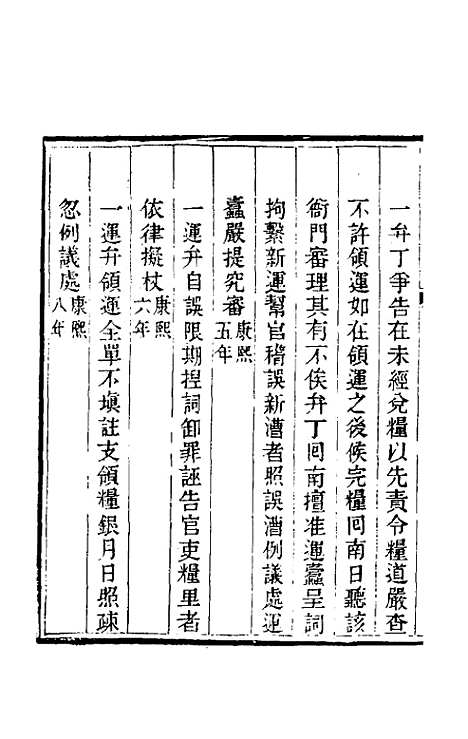 一弁丁爭告在未經兌糧以先責令糧道嚴查
不許領運如在領運之後候完糧回南日聽該
衙門審理其有不俟弁丁囘南擅准運蠹呈詞
拘繫新運幫官稽誤新漕者照誤漕例議處運
蠹嚴提究審康熙五年
一運弁自誤限期捏詞卸罪誣告官吏糧里者
依律擬杖康熙六年
一運弁領運全單不塡註支領糧銀月日照疎
忽例議處康熙八年